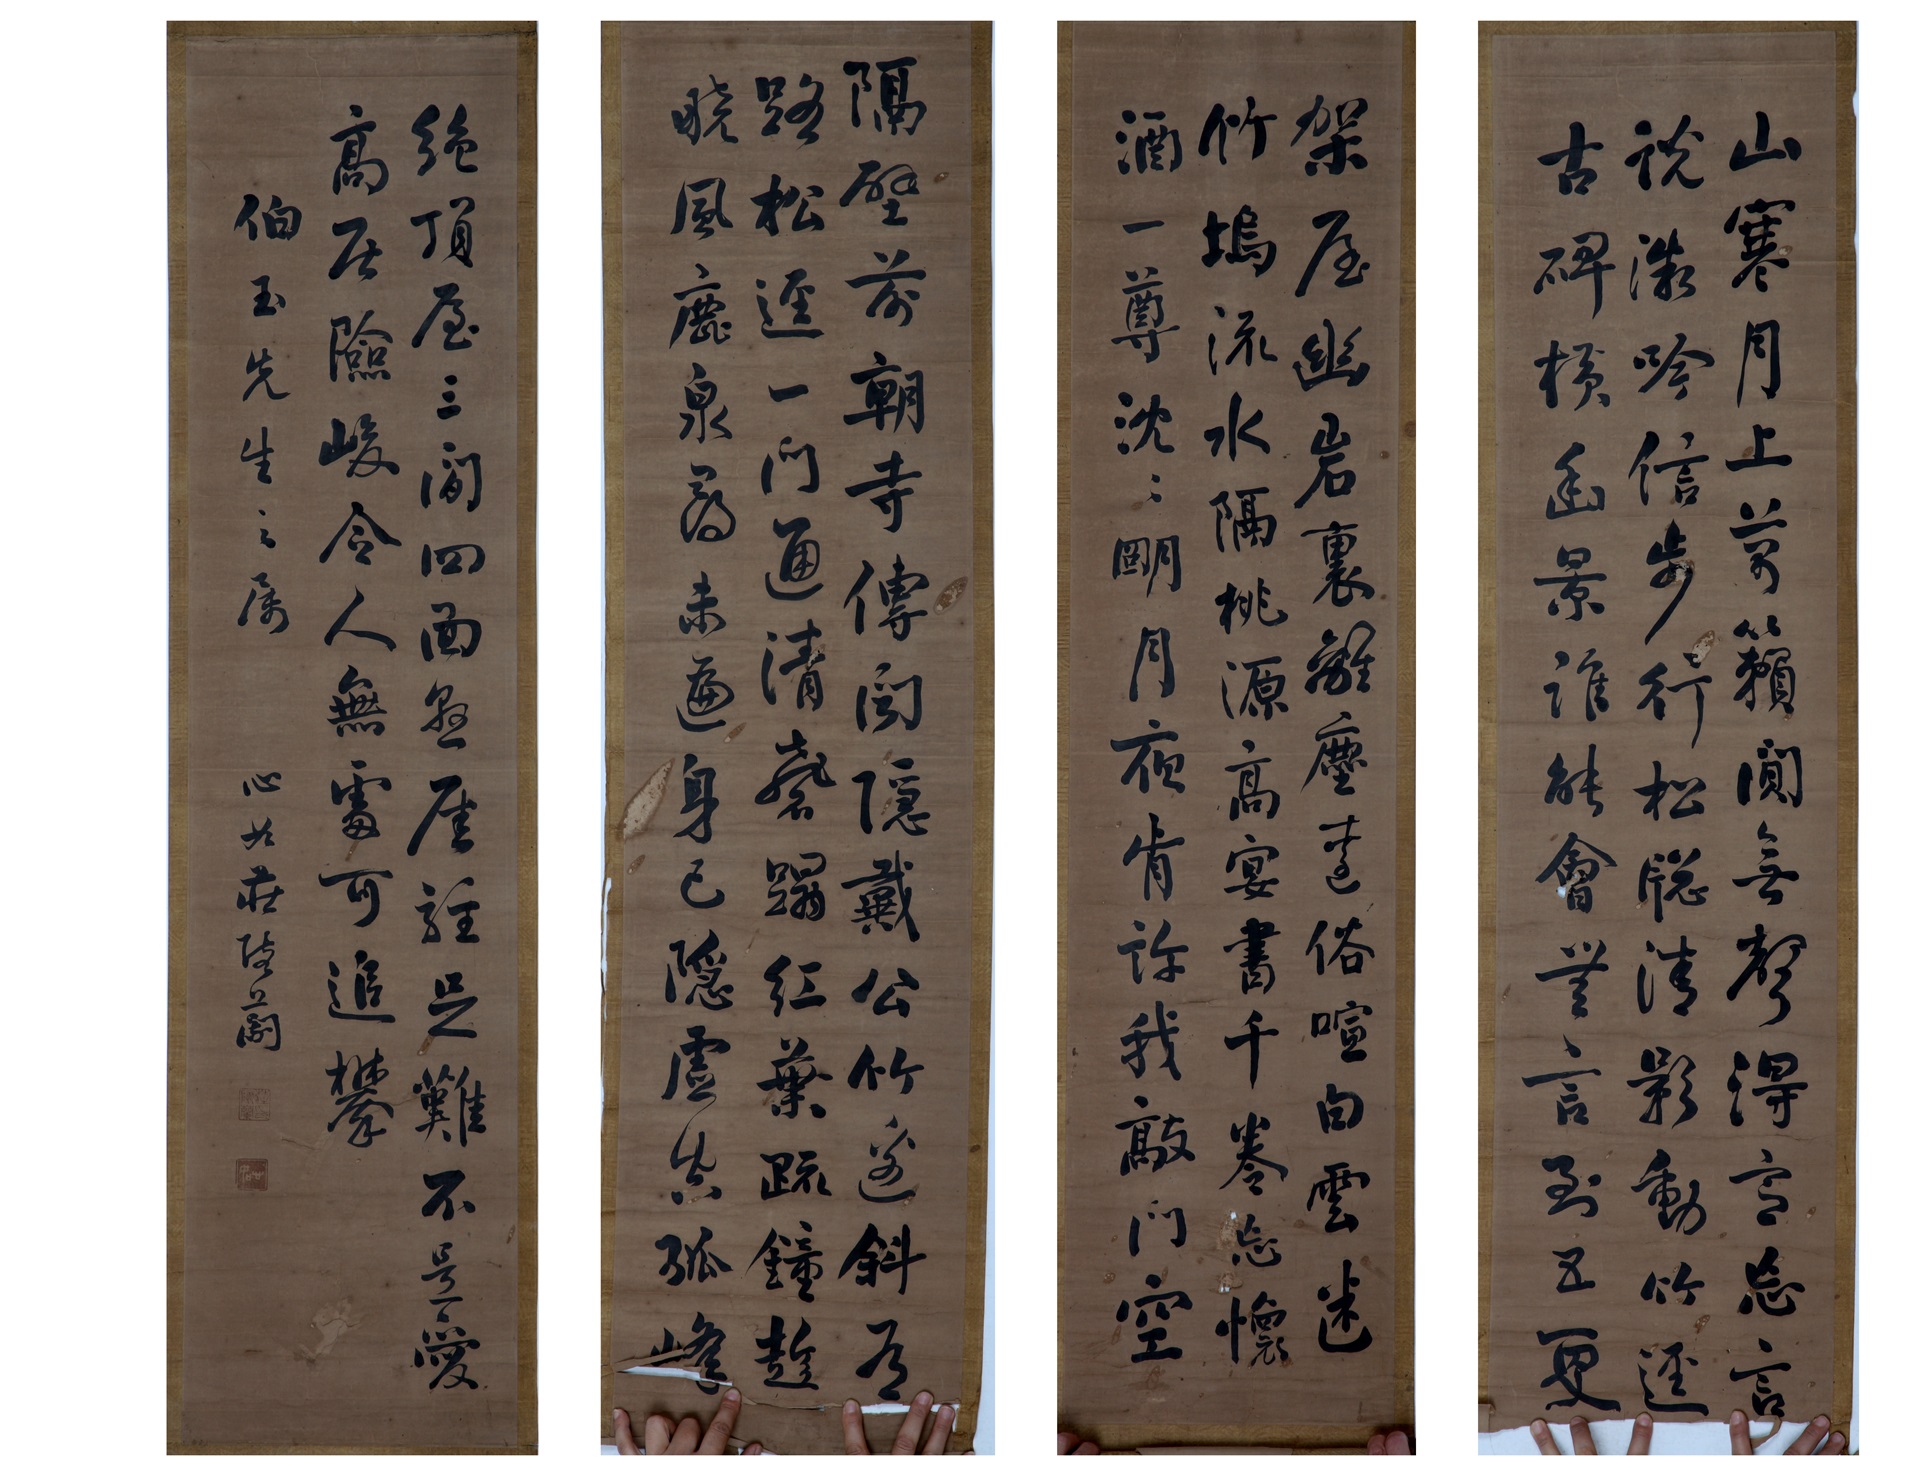 山寒月上萬籟闃無聲得忘言
說微吟信步行松牕清影動竹迳
古碑橫幽景誰能會無言到五更
架屋幽岩裏離塵遠俗喧白雲迷
竹塢流水隔桃源高宴書千卷忘懷
酒一尊沈沈明月夜肯許我敲門空
隔壁前朝寺傳聞隱戴公竹邃斜有
路松逕一門通清磬躡紅葉疏鐘趁
曉風鹿泉尋未遍身已隱虛空孤峰
絕頂屋三間四面懸崖駐足難不是愛
高居險峻令人無處可追攀
伯玉先生之屬
心如莊陵